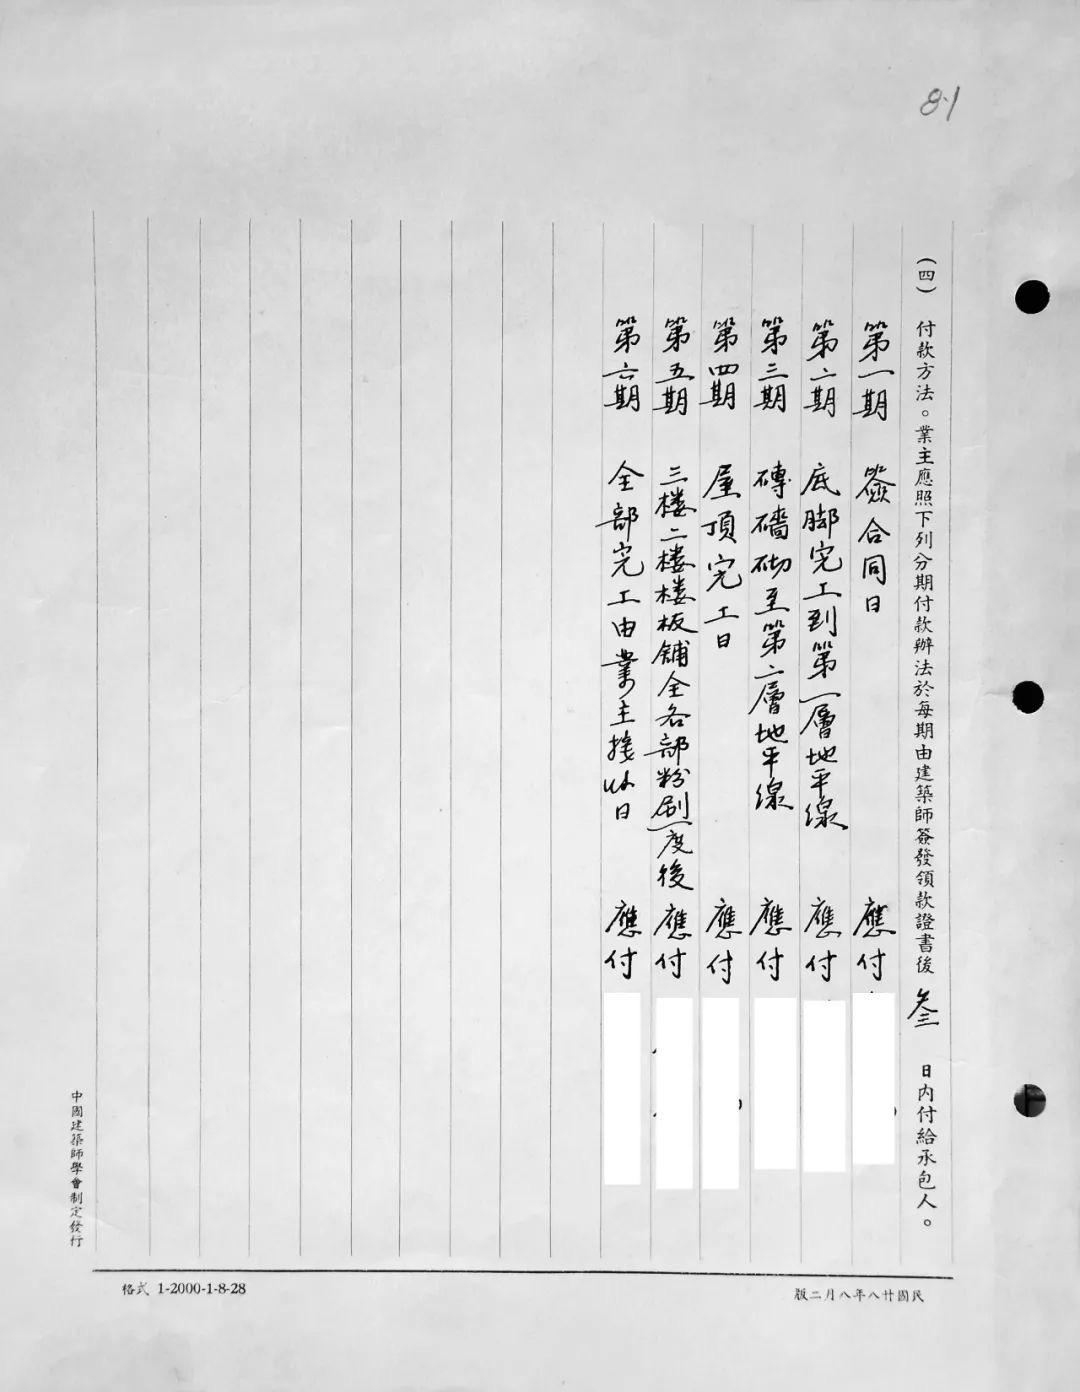 81
(四) 付款方法。業主應照下列分期付款辦法於每期由建築師簽發領款證書後 叁 日內付給承包人。
第一期 簽合同日 應付
第二期 底脚完工到第一層地平線 應付
第三期 磚墻砌至第二層地平線 應付
第四期 屋頂完工日 應付
第五期 三楼二楼楼板舖全各部粉刷一度後 應付
第六期 全部完工由業主接收日 應付
中國建築師學會制定發行
格式 1-2000-1-8-28
民國廿八年八月二版